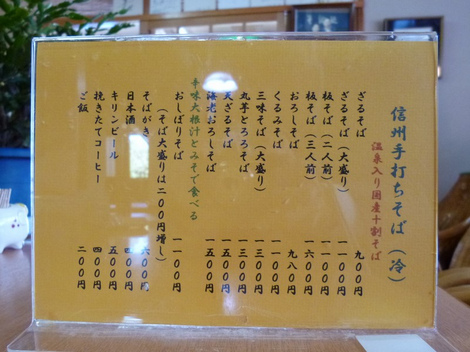 信州手打ちそば（冷）
温泉入り国産十割そば
ざるそば 九〇〇円
ざるそば（大盛り） 一一〇〇円
板そば（二人前） 一一〇〇円
板そば（三人前） 一六〇〇円
おろしそば 九八〇円
くるみそば 一一〇〇円
三味そば（大盛り） 一三〇〇円
丸芋とろろそば 一三〇〇円
天ざるそば 一五〇〇円
海老おろしそば 一五〇〇円
辛味大根汁とみそで食べる
おしぼりそば 一一〇〇円
（そば大盛りは二〇〇円増し）
そばがき 六〇〇円
日本酒 四〇〇円
キリンビール 五〇〇円
挽きたてコーヒー 四〇〇円
ご飯 二〇〇円